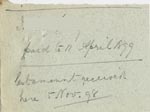 paid to 11 April 1899
amount received
here 5 Nov. 98